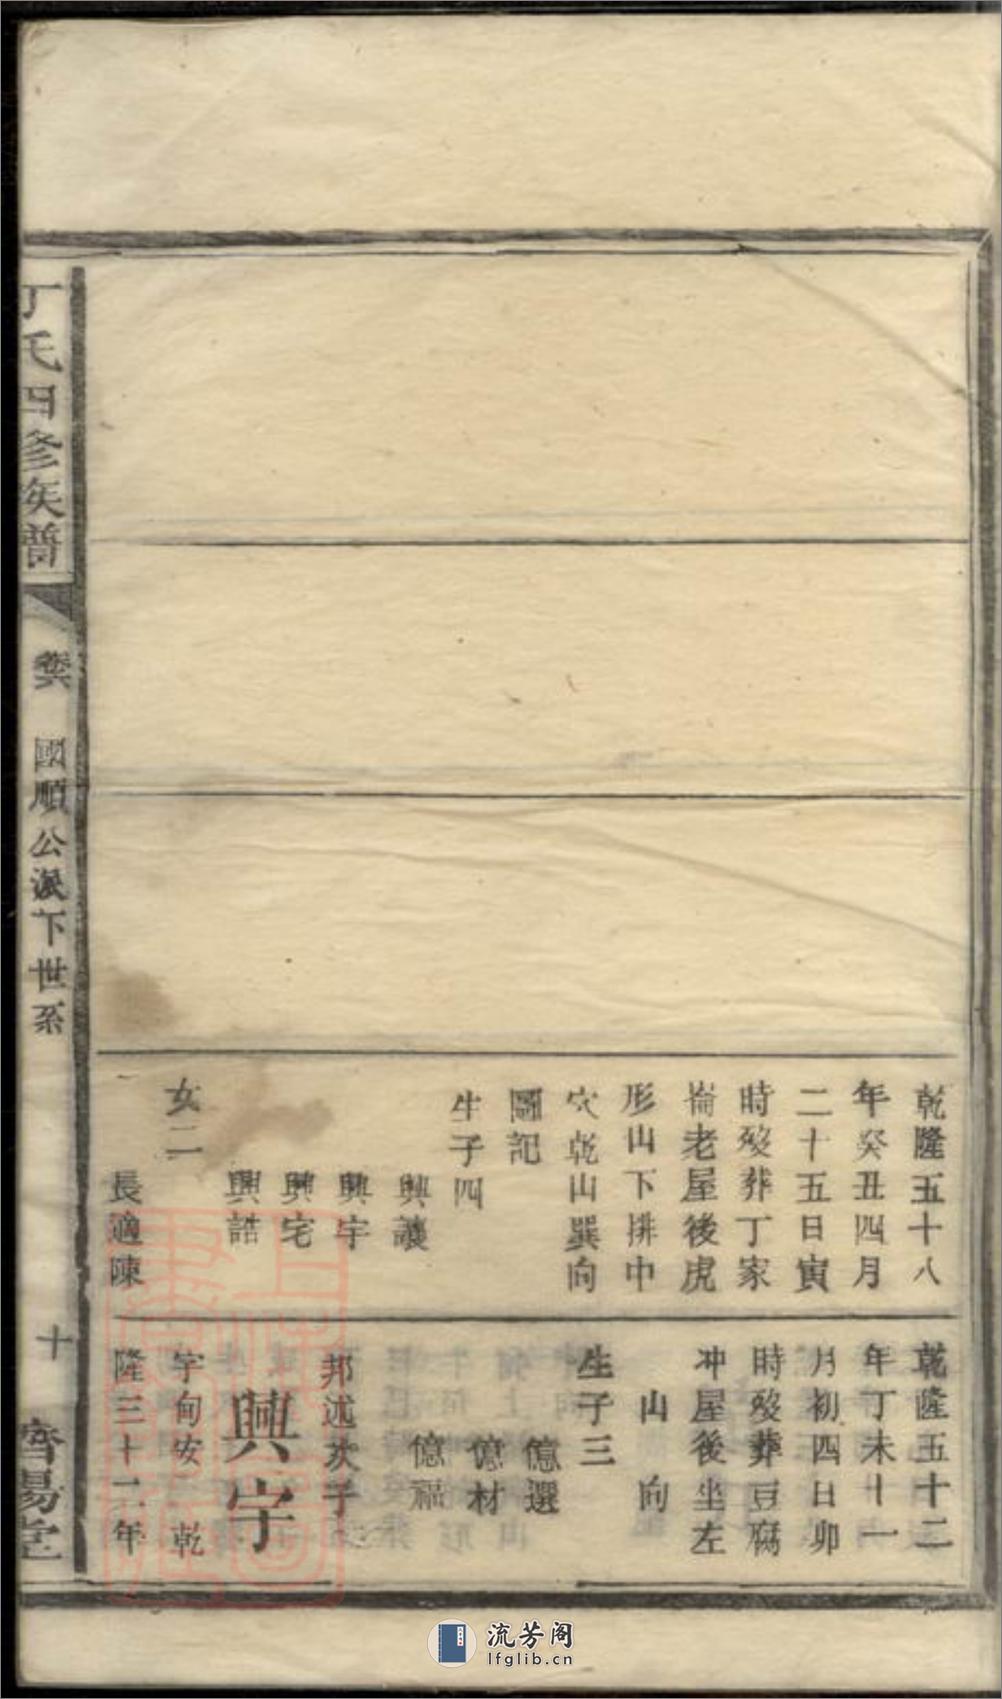 乾隆五十八
年癸丑四月
二十五日寅
時歿葬丁家
崙老屋後虎
形山下排中
穴乾山巽向
圖記
生子四
興讓
興宇
興宅
興誥
女二
長適陳
乾隆五十二
年丁未十一
月初四日卯
時歿葬豆腐
冲屋後坐左
山向
生子三
億選
億材
億福
邦述次子
興宇
字甸安 乾
隆三十二年
丁氏四修族譜
卷六
國順公派下世系
十
濟陽堂
流芳阁
lfglib.cn